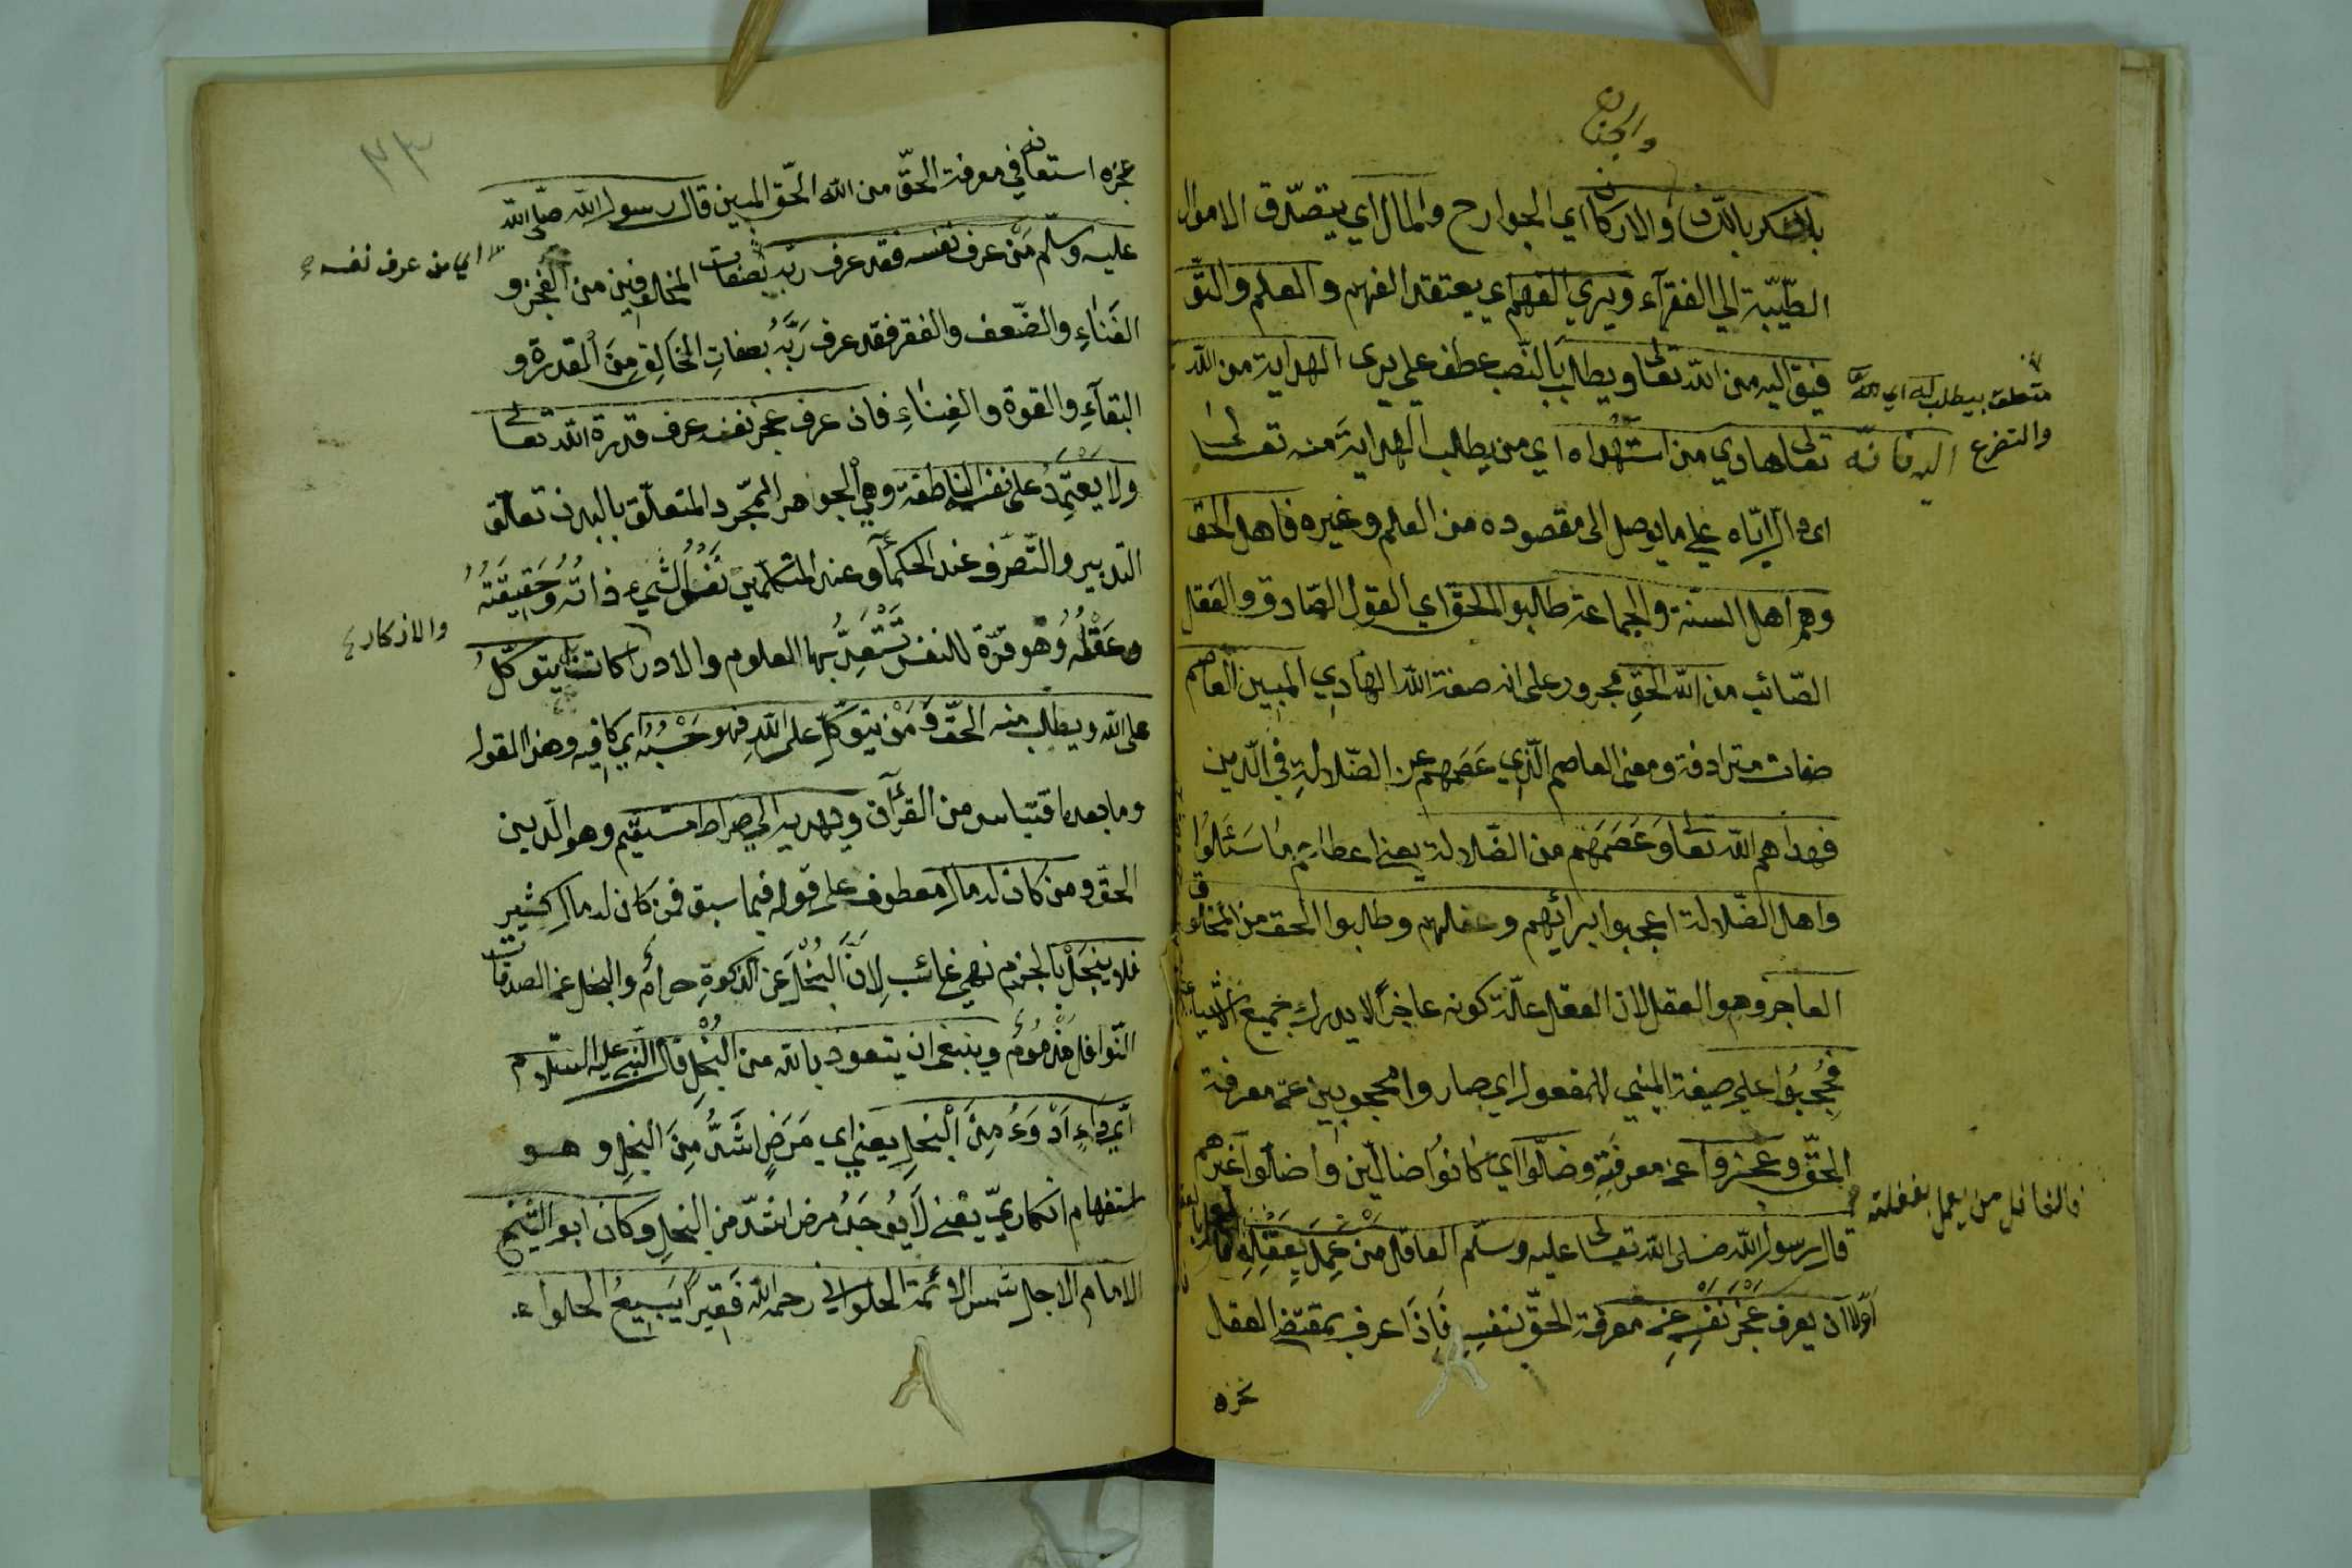 والجنان
بالشكر باللسان والاركان اي الجوارح والمال اي يتصدق الاموال
الطيبة الي الفقرآء ويري الفهم اي يعتقد الفهم والعلم والتو
فيق اليه من الله تعالى ويطلب بالنصب عطف علي يرى الهداية من الله
متعلق بيطلب
والتضرع اليه فانه تعالى هادي من استهداه اي من يطلب الهداية منه تعالى
اى دال اياه علي ما يوصل الى مقصوده من العلم وغيره فاهل الحق
وهم اهل السنة والجماعة طالبوا الحق اي القول الصادق والفعل
الصائب من الله الحق مجرور على انه صفة الله الهادي المبين العاصم
صفات مترادفة ومعنى العاصم الذي عصمهم عن الضلالة في الدين
فهداهم الله تعالى وعصمهم من الضلالة يعني اعطاهم ما سئلوا
واهل الضلالة اعجبوا برائهم وعقلهم وطلبوا الحق من المخلوق
العاجز وهو العقل لان العقل علة كونه عاجزا لا يدرك جميع الاشياء
فحجبوا علي صيغة المبني للمفعول اي صاروا محجوبين عن معرفة
الحق وعجزوا عن معرفته وضلوا اي كانوا ضالين واضلوا غيرهم
قال رسول الله صلى الله تعالى عليه وسلم العاقل من عمل بعقله
فالغافل من يعمل بغفلته
اولا ان يعرف عجز نفسه عن معرفة الحق بنفسه فاذا عرف بمقتضى العقل
عجزه
٢٣
عجزه استعانه في معرفة الحق من الله الحق المبين قال رسول الله صلى الله
عليه وسلم من عرف نفسه فقد عرف ربه بصفات المخلوقين من العجز و
اي من عرف نفسه
الفناء والضعف والفقر فقد عرف ربه بصفات الخالق من القدرة و
البقآء والقوة والغناء فان عرف عجز نفسه عرف قدرة الله تعالى
ولا يعتمد على نفسه الناطقة وهي الجواهر المجرد المتعلق بالبدن تعلق
التدبير والتصرف عند الحكمآء وعند المتكلمين نفس الشيء ذاته وحقيقته
وعقله وهو قوة للنفس تستعد بها العلوم والادراكات بل يتوكل
والاذكار
على الله ويطلب منه الحق ومن يتوكل على الله فهو حسبه اي كافيه وهذا المقول
وما بعده اقتباس من القرآن ويهديه الي صراط مستقيم وهو الدين
الحق ومن كان له مال معطوف على قوله فيما سبق فمن كان له مال كثير
فلا يبخل بالجزم نهي غائب لان البخل عن الذكوة حرام والبخل عن الصدقات
النوافل مذموم وينبغى ان يتعوذ بالله من البخل قال النبي عليه السلام
اي داء ادوء من البخل يعني اي مرض اشد من البخل وهو
استفهام انكاري يعني لا يوجد مرض اشد من البخل وكان ابو الشيخ
الامام الاجل شمس الائمة الحلواني رحمه الله فقيرا يبيع الحلواء